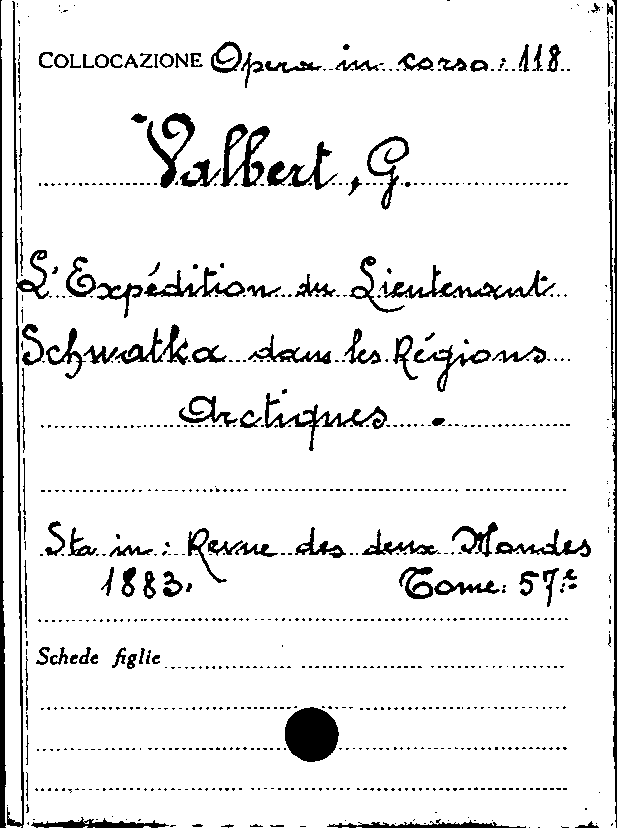 COLLOCAZIONE Opera in corso: 118
Valbert, G.
L'Expédition du Lieutenant
Schwatka dans les Régions
Arctiques.
Sta in: Revue des deux Mondes
1883. Tome: 57e
Schede figlie